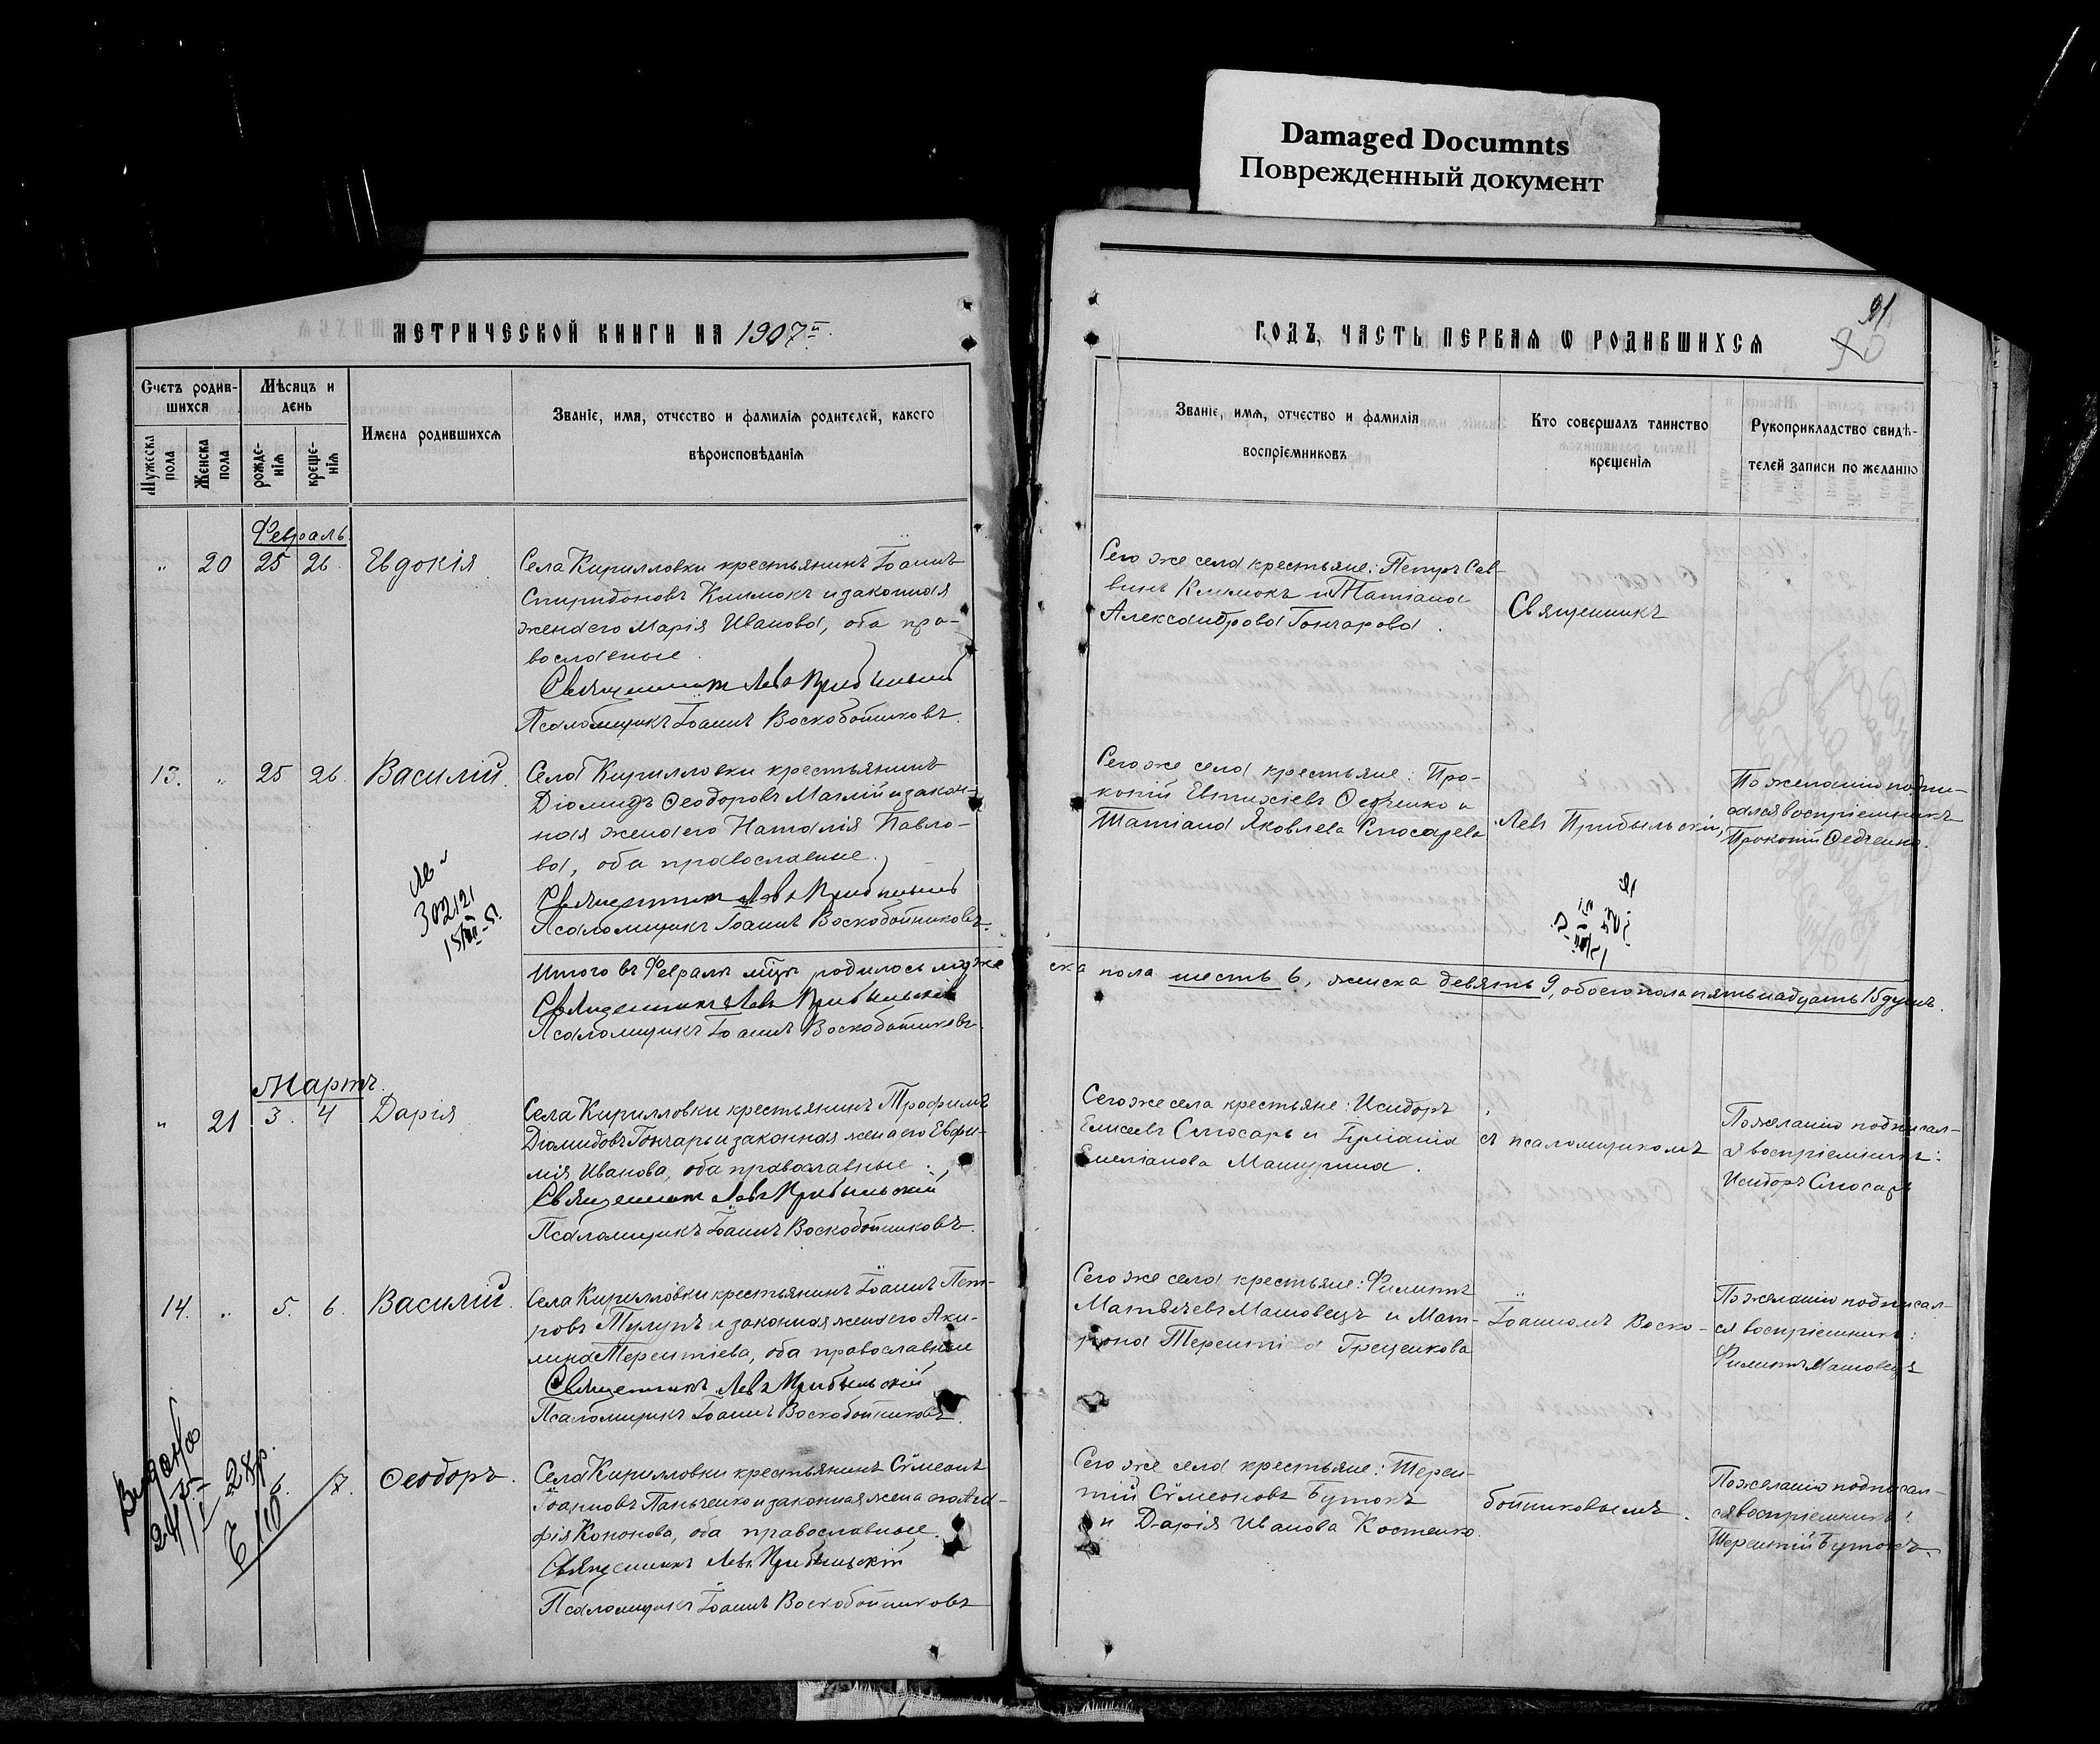 Damaged Documnts
Поврежденный документ
МЕТРИЧЕСКОЙ КНИГИ НА 1907й
Счетъ родив-
шихся
Мѣсяцъ и
день
Мужеска
пола
Женска
пола
рожде-
нія
креще-
нія
Имена родившихся
Званіе, имя, отчество и фамилія родителей, какого
вѣроисповѣданія
Февраль
" 20 25 26. Евдокія
Села Кирилловки крестьянинъ Іоаннъ
Спиридоновъ Климокъ и законная
жена его Марія Иванова, оба пра-
вославные.
Священникъ Левъ Прибыльскій
Псаломщикъ Іоаннъ Воскобойниковъ.
13. " 25 26. Василій.
Села Кирилловки крестьянинъ
Діомидъ Ѳеодоровъ и закон-
ная жена его Наталія Павло-
ва, оба православные.
Священникъ Левъ Прибыльскій
Псаломщикъ Іоаннъ Воскобойниковъ.
Итого въ Февралѣ мцѣ родилось муже
Священникъ Левъ Прибыльскій
Псаломщикъ Іоаннъ Воскобойниковъ.
Мартъ.
" 21 3. 4 Дарія
Села Кирилловки крестьянинъ Трофимъ
Діомидовъ Гончаръ и законная жена его Евфи-
мія Иванова, оба православные.
Священникъ Левъ Прибыльскій
Псаломщикъ Іоаннъ Воскобойниковъ.
14. " 5. 6. Василій.
Села Кирилловки крестьянинъ Іоаннъ Пет-
ровъ Тулупъ и законная жена его Аки-
лина Терентіева, оба православные
Священникъ Левъ Прибыльскій
Псаломщикъ Іоаннъ Воскобойниковъ.
6. 7. Ѳеодоръ.
Села Кирилловки крестьянинъ Сѵмеонъ
Іоанновъ Паньченко и законная жена его Ага-
фія Кононова, оба православные.
Священникъ Левъ Прибыльскій
Псаломщикъ Іоаннъ Воскобойниковъ
91
90
ГОДЪ, ЧАСТЬ ПЕРВАЯ Ѡ РОДИВШИХСЯ
Званіе, имя, отчество и фамилія
воспріемниковъ
Кто совершалъ таинство
крещенія
Рукоприкладство свидѣ-
телей записи по желанію
Сего же села крестьяне: Петръ Сав-
винъ Климокъ и Татіана
Александрова Гончарова.
Священникъ
Сего же села крестьяне: Про-
копій Евтихіевъ Ѳедченко и
Татіана Яковлева Слюсарева
Левъ Прибыльскій,
По желанію подпи-
сался воспріемникъ
Прокопій Ѳедченко.
ска пола шесть 6, женска девять 9, обоего пола пятьнадцать 15 душъ.
Сего же села крестьяне: Исидоръ
Елисеевъ Слюсарь и Іуліанія
Емеліанова Машурина.
съ псаломщикомъ
По желанію подписал-
ся воспріемникъ:
Исидоръ Слюсарь
Сего же села крестьяне: Филиппъ
Матвѣевъ Машовецъ и Мат-
рона Терентіева Греценкова
Іоанномъ Воско-
По желанію подписал-
ся воспріемникъ:
Филиппъ Машовецъ
Сего же села крестьяне: Терен-
тій Сѵмеоновъ Бутокъ
и Дарія Иванова Костенко.
бойниковымъ.
По желанію подписал-
ся воспріемникъ:
Терентій Бутокъ.